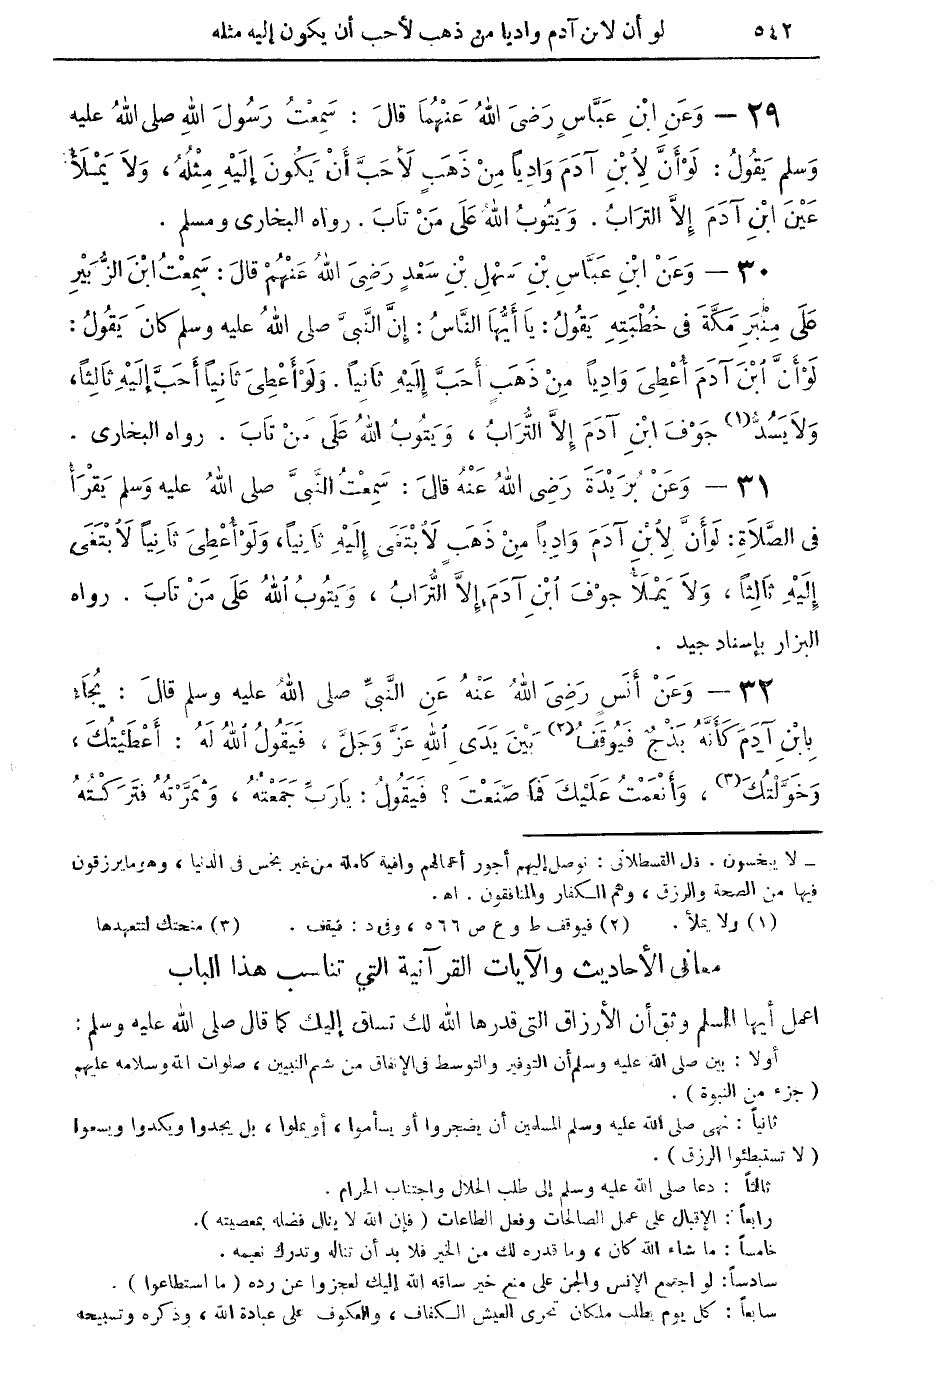 ٥٤٢ لو أن لابن آدم واديا من ذهب لأحب أن يكون إليه مثله
٢٩ — وَعَنِ ابْنِ عَبَّاسٍ رَضِىَ اللهُ عَنْهُمَا قَالَ : سَمِعْتُ رَسُولَ اللهِ صلى اللهُ عليه
وَسلم يَقُولُ : لَوْ أَنَّ لِابْنِ آدَمَ وَادِياً مِنْ ذَهَبٍ لَأَحَبَّ أَنْ يَكُونَ إِلَيْهِ مِثْلُهُ ، وَلَا يَمْلَأُ
عَيْنَ ابْنِ آدَمَ إِلاَّ التُّرَابُ . وَيَتُوبُ اللهُ عَلَى مَنْ تَابَ . رواه البخارى ومسلم .
٣٠ — وَعَنْ ابْنِ عَبَّاسِ بْنِ سَهْلِ بْنِ سَعْدٍ رَضِىَ اللهُ عَنْهُمْ قَالَ : سَمِعْتُ ابْنَ الزُّبَيْرِ
عَلَى مِنْبَرِ مَكَّةَ فى خُطْبَتِهِ يَقُولُ : يَا أَيُّهَا النَّاسُ : إِنَّ النَّبىَّ صلى اللهُ عليه وسلم كَانَ يَقُولُ :
لَوْ أَنَّ ابْنَ آدَمَ أُعْطِىَ وَادِياً مِنْ ذَهَبٍ أَحَبَّ إِلَيْهِ ثَانِياً . وَلَوْ أُعْطِىَ ثَانِياً أَحَبَّ إِلَيْهِ ثَالِثاً ،
وَلَا يَسُدُّ(١) جَوْفَ ابْنِ آدَمَ إِلاَّ التُّرَابُ ، وَيَتُوبُ اللهُ عَلَى مَنْ تَابَ . رواه البخارى .
٣١ — وَعَنْ بُرَيْدَةَ رَضِى اللهُ عَنْهُ قَالَ : سَمِعْتُ النَّبىَّ صلى اللهُ عليه وَسلم يَقْرَأُ
فى الصَّلَاةِ : لَوْ أَنَّ لِابْنِ آدَمَ وَادِياً مِنْ ذَهَبٍ لَابْتَغَى إِلَيْهِ ثَانِياً ، وَلَوْ أُعْطِىَ ثَانِياً لَابْتَغَى
إِلَيْهِ ثَالِثاً ، وَلَا يَمْلَأُ جَوْفَ ابْنِ آدَمَ إِلاَّ التُّرَابُ ، وَيَتُوبُ اللهُ عَلَى مَنْ تَابَ . رواه
البزار بإسناد جيد .
٣٢ — وَعَنْ أَنَسٍ رَضِىَ اللهُ عَنْهُ عَنِ النَّبِىِّ صلى اللهُ عليه وسلم قَالَ : يُجَاءُ
بِابْنِ آدَمَ كَأَنَّهُ بَذَجٌ فَيُوقَفُ(٢) بَيْنَ يَدَىِ اللهِ عَزَّ وَجَلَّ ، فَيَقُولُ اللهُ لَهُ : أَعْطَيْتُكَ ،
وَخَوَّلْتُكَ(٣) ، وَأَنْعَمْتُ عَلَيْكَ فَمَا صَنَعْتَ ؟ فَيَقُولُ : يَارَبِّ جَمَعْتُهُ ، وَثَمَّرْتُهُ فَتَرَكْتُهُ
_ لا يبخسون . قال القسطلانى : نوصل إليهم أجور أعمالهم وافية كاملة من غير بخس فى الدنيا ، وهو ما يرزقون
فيها من الصحة والرزق ، وهم الكفار والمنافقون . اهـ .
(١) ولا يملأ . (٢) فيوقف ط و ع ص ٥٦٦ ، وفى د : فيقف . (٣) منحتك لتتعهدها
معانى الأحاديث والآيات القرآنية التي تناسب هذا الباب
اعمل أيها المسلم وثق أن الأرزاق التى قدرها الله لك تساق إليك كما قال صلى الله عليه وسلم :
أولا : بين صلى الله عليه وسلم أن التوفير والتوسط فى الإنفاق من شيم النبيين ، صلوات الله وسلامه عليهم
( جزء من النبوة ) .
ثانياً : نهى صلى الله عليه وسلم المسلمين أن يضجروا أو يسأموا ، أو يملوا ، بل يجدوا ويكدوا ويسعوا
( لا تستبطئوا الرزق ) .
ثالثاً : دعا صلى الله عليه وسلم إلى طلب الحلال واجتناب الحرام .
رابعاً : الإقبال على عمل الصالحات وفعل الطاعات ( فإن الله لا ينال فضله بمعصيته ) .
خامساً : ما شاء الله كان ، وما قدره لك من الخير فلا بد أن تناله وتدرك نعيمه .
سادساً : لو اجتمع الإنس والجن على منع خير ساقه الله إليك لعجزوا عن رده ( ما استطاعوا ) .
سابعاً : كل يوم يطلب ملكان تحرى العيش الكفاف ، والعكوف على عبادة الله ، وذكره وتسبيحه